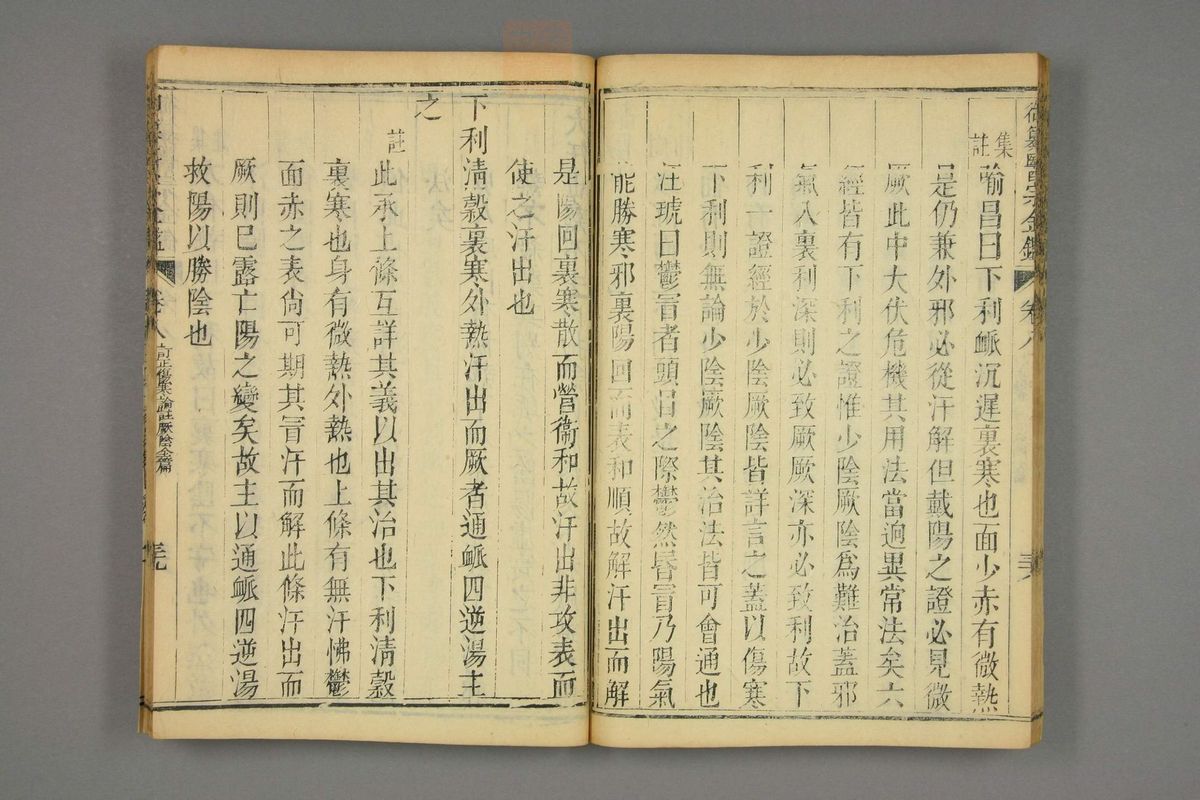 御纂醫宗金鑑 卷八 三六
集註
喻昌曰下利脈沉遲裏寒也面少赤有微熱
是仍兼外邪必從汗解但戴陽之證必見微
厥此中大伏危機其用法當迥異常法矣六
經皆有下利之證惟少陰厥陰爲難治蓋邪
氣入裏利深則必致厥厥深亦必致利故下
利一證經於少陰厥陰皆詳言之蓋以傷寒
下利則無論少陰厥陰其治法皆可會通也
汪琥曰鬱冒者頭目之際鬱然昏冒乃陽氣
能勝寒邪裏陽回而表和順故解汗出而解
是陽回裏寒散而營衞和故汗出非攻表而
使之汗出也
下利淸穀裏寒外熱汗出而厥者通脈四逆湯主
之
註
此承上條互詳其義以出其治也下利淸穀
裏寒也身有微熱外熱也上條有無汗怫鬱
面赤之表尙可期其冒汗而解此條汗出而
厥則已露亡陽之變矣故主以通脈四逆湯
救陽以勝陰也
卷八 訂正傷寒論註厥陰全篇